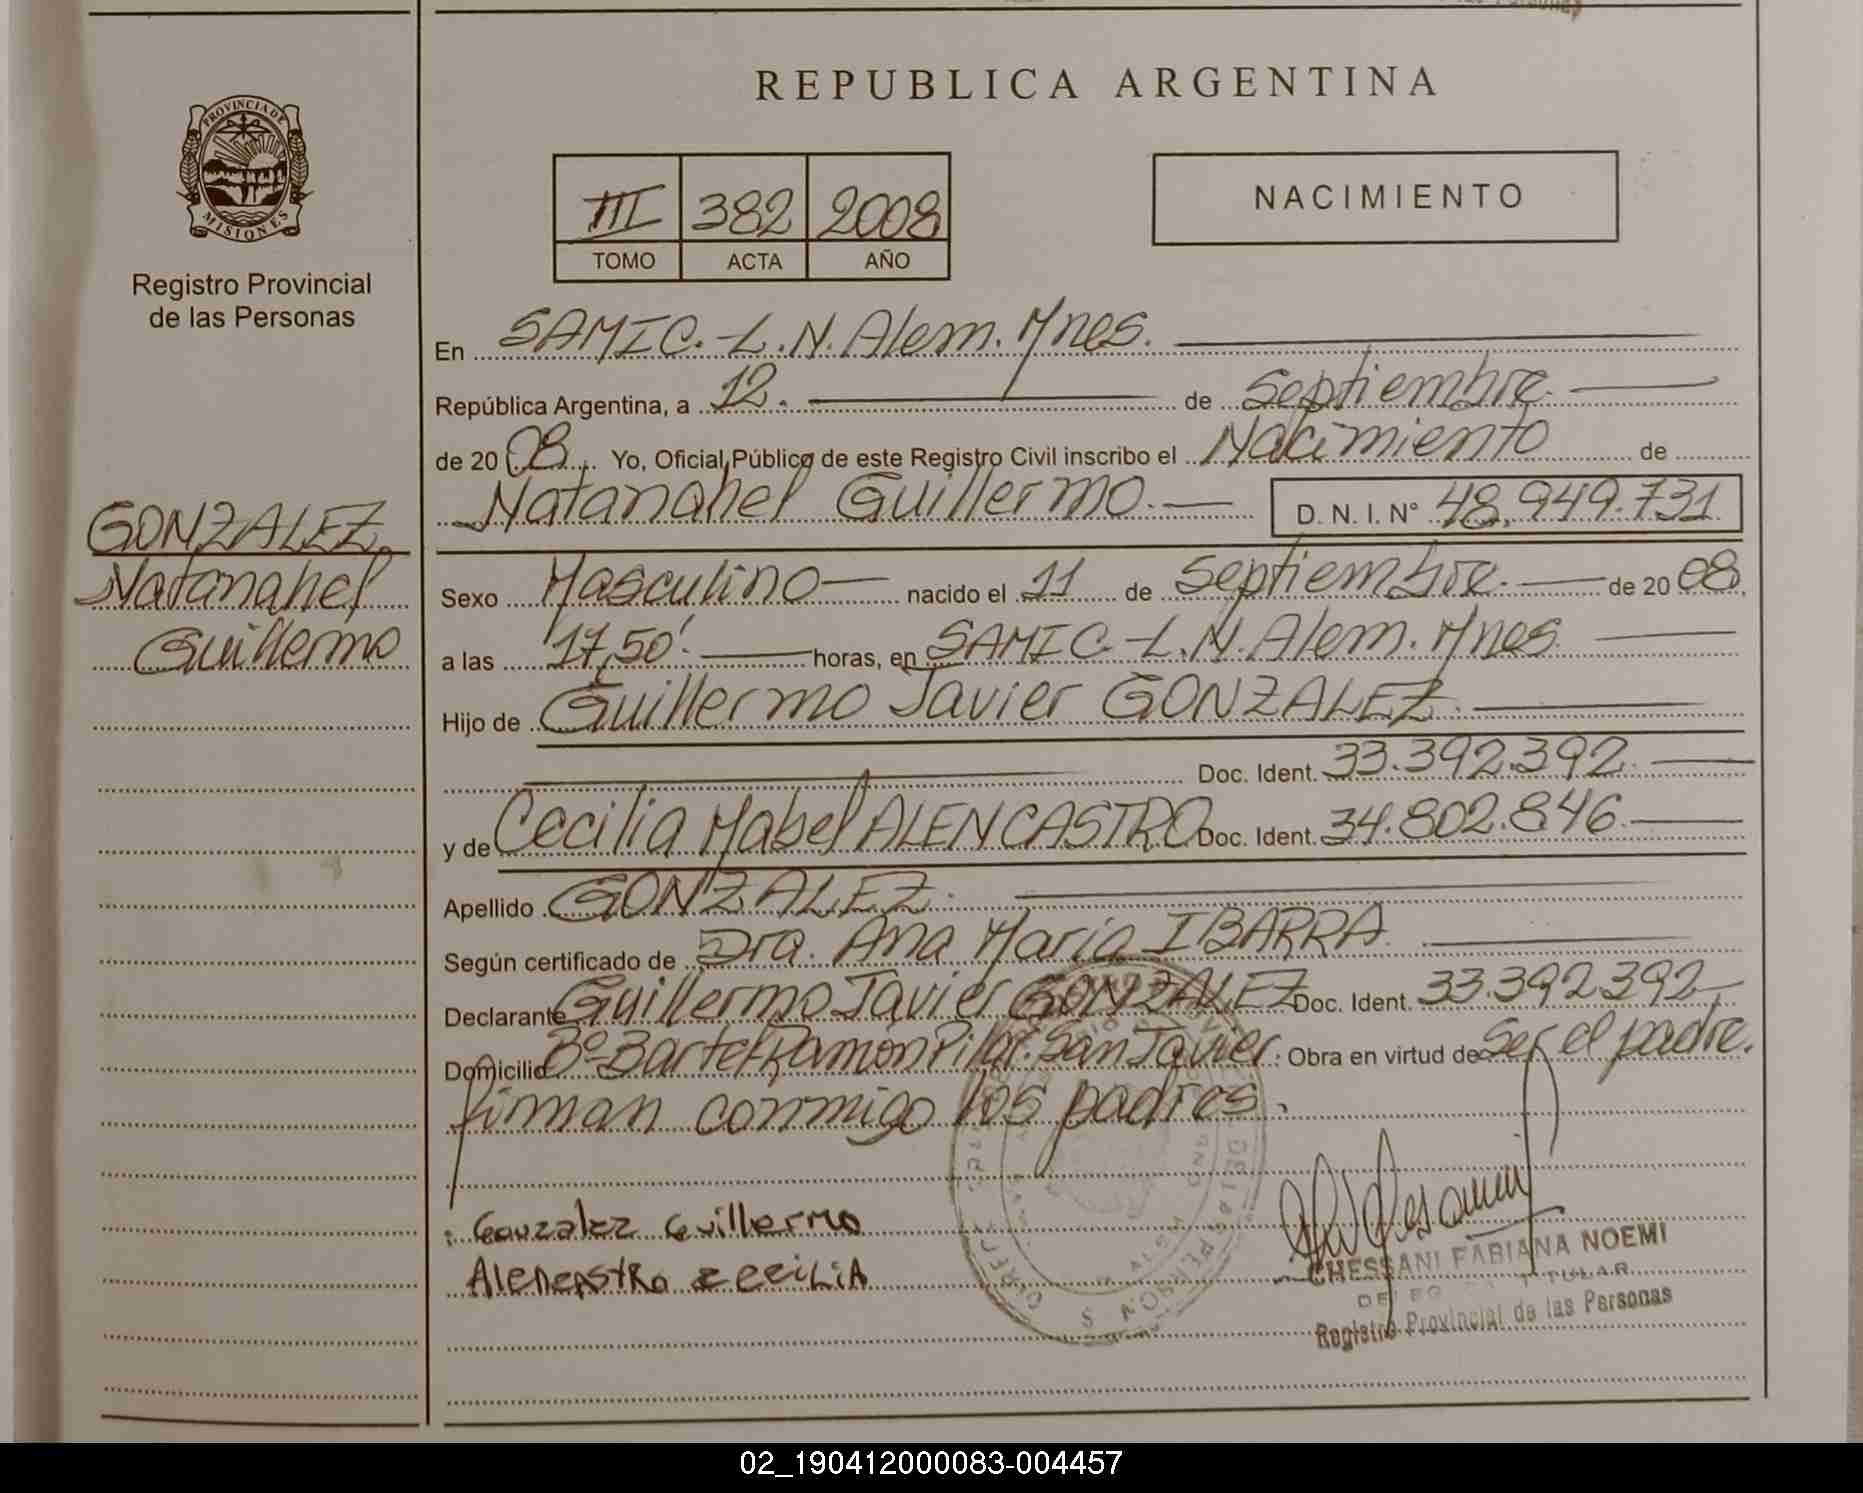 REPUBLICA ARGENTINA
PROVINCIA DE
MISIONES
Registro Provincial
de las Personas
III 382 2008
TOMO ACTA AÑO
NACIMIENTO
En SAMIC.-L.N.Alem.Mnes.
República Argentina, a 12. de Septiembre.
de 2008. Yo, Oficial Público de este Registro Civil inscribo el Nacimiento de
Natanahel Guillermo. D. N. I. N° 48.949.731
GONZALEZ
Natanahel
Guillermo
Sexo Masculino nacido el 11 de Septiembre. de 2008.
a las 17,50'. horas, en SAMIC.-L.N.Alem.Mnes.
Hijo de Guillermo Javier GONZALEZ.
Doc. Ident. 33.392.392.
y de Cecilia Mabel ALENCASTRO Doc. Ident. 34.802.846.
Apellido GONZALEZ.
Según certificado de Dra. Ana Maria IBARRA.
Declarante Guillermo Javier GONZALEZ Doc. Ident. 33.392.392
Domicilio Bº-Bartel Ramón Pilar. San Javier. Obra en virtud de Ser el padre.
firman conmigo los padres.
Gonzalez Guillermo
CHESSANI FABIANA NOEMI
Registro Provincial de las Personas
02_190412000083-004457